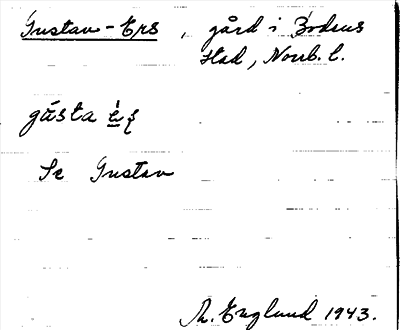 Gustav-Ers, gård i Bodens
stad, Norrb. l.
gästa
Se Gustav
M. Englund 1943.